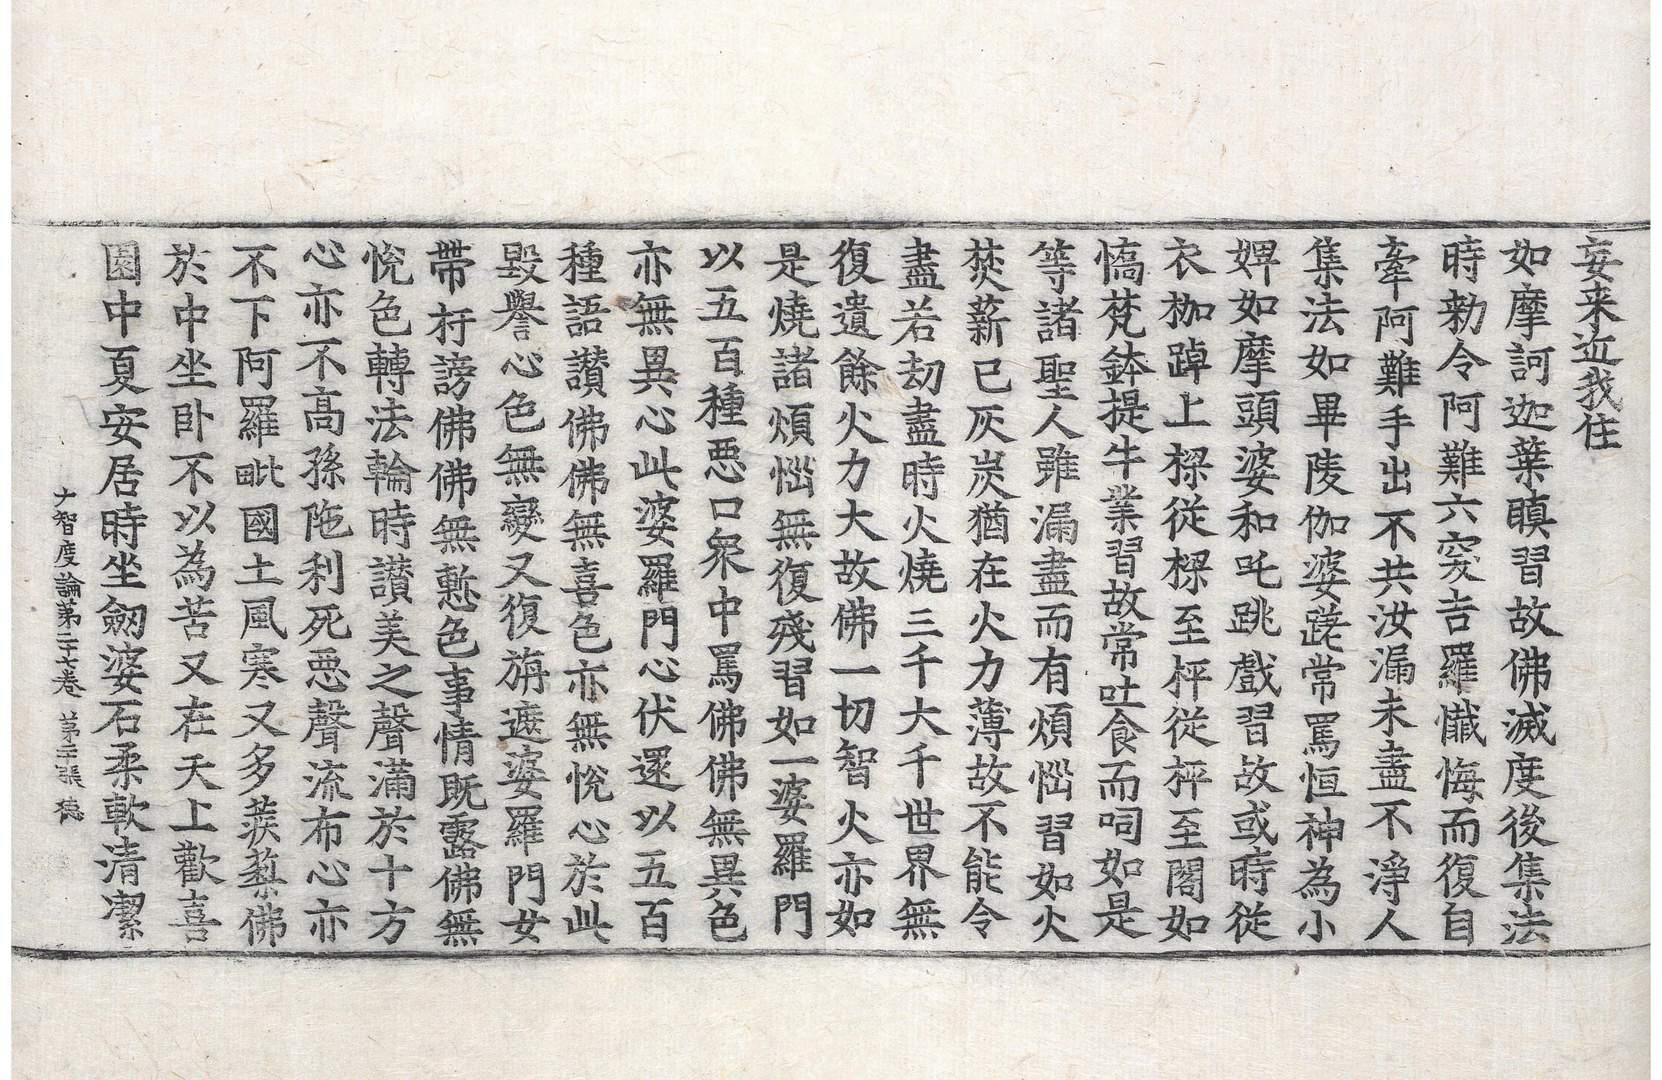 妄来近我住
如摩訶迦葉瞋習故佛滅度後集法
時勑令阿難六突吉羅懺悔而復自
牽阿難手出不共汝漏未盡不淨人
集法如畢陵伽婆蹉常罵恒神為小
婢如摩頭婆和吒跳戲習故或時從
衣枷踔上樑從樑至枰從枰至閣如
憍梵鉢提牛業習故常吐食而呞如是
等諸聖人雖漏盡而有煩惱習如火
焚薪已灰炭猶在火力薄故不能令
盡若劫盡時火燒三千大千世界無
復遺餘火力大故佛一切智火亦如
是燒諸煩惱無復殘習如一婆羅門
以五百種惡口衆中罵佛佛無異色
亦無異心此婆羅門心伏還以五百
種語讃佛佛無喜色亦無悅心於此
毀譽心色無變又復旃遮婆羅門女
帶杅謗佛佛無慙色事情既露佛無
悅色轉法輪時讃美之聲滿於十方
心亦不高孫陁利死惡聲流布心亦
不下阿羅毗國土風寒又多蒺䔧佛
於中坐卧不以為苦又在天上歡喜
園中夏安居時坐劒婆石柔軟清潔
大智度論第二十七卷 第二張 德